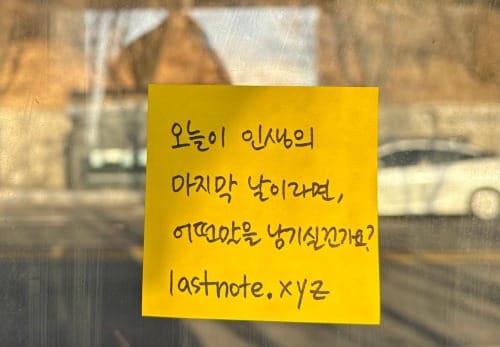 오늘이 인생의
마지막 날이라면,
어떤말을 남기실건가요?
lastnote.xyz